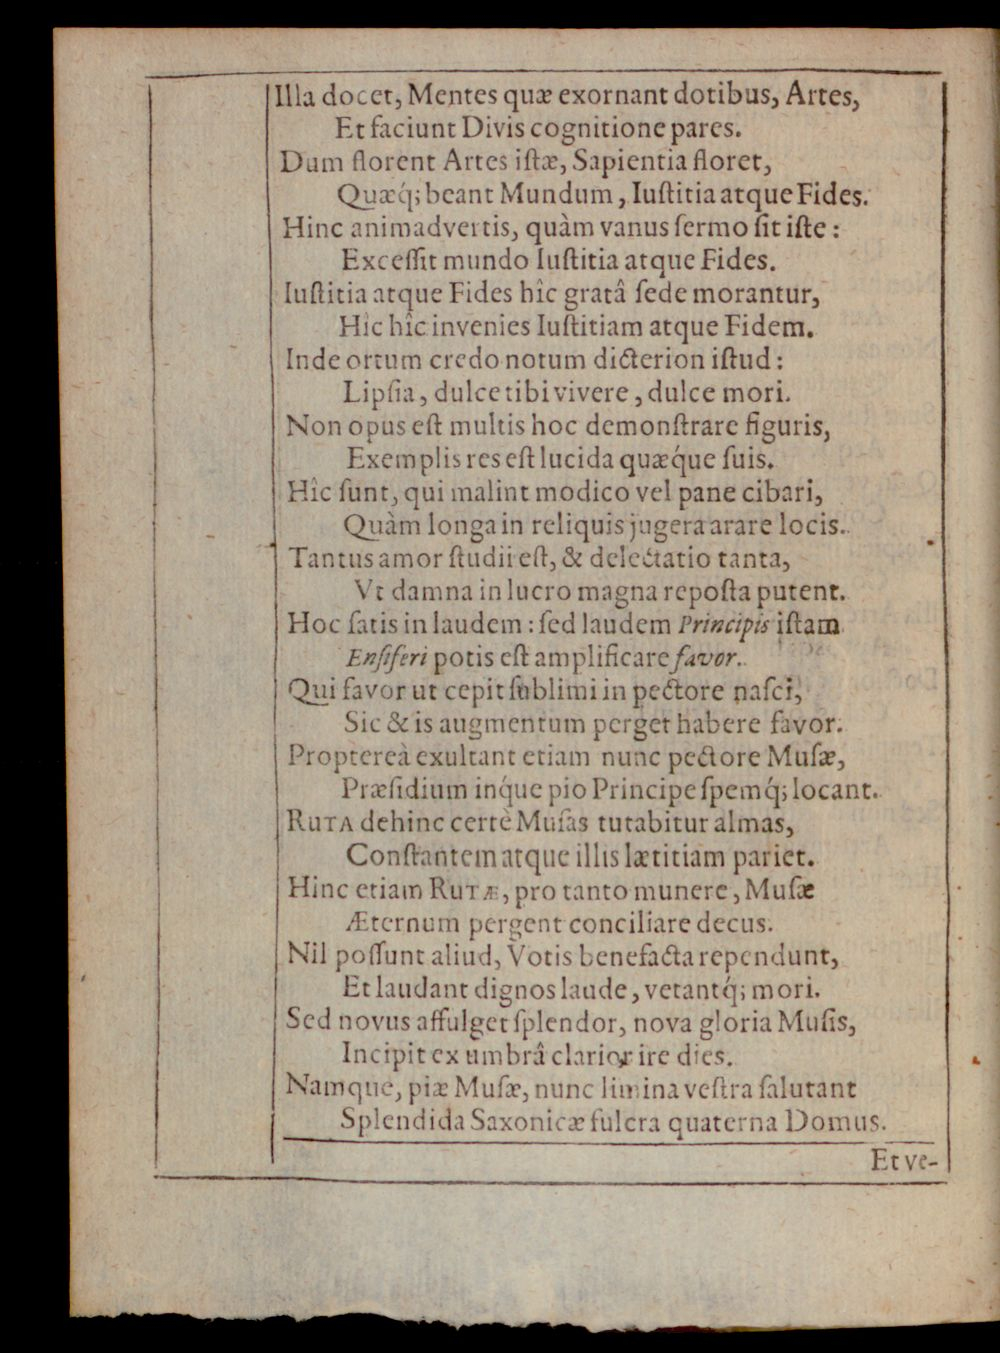 Illa docet, Mentes quæ exornant dotibus, Artes,
Et faciunt Divis cognitione pares.
Dum florent Artes iſtæ, Sapientia floret,
Quæq́; beant Mundum, Iuſtitia atque Fides.
Hinc animadvertis, quàm vanus ſermo ſit iſte:
Exceſſit mundo Iuſtitia atque Fides.
Iuſtitia atque Fides hîc gratâ ſede morantur,
Hic hîc invenies Iuſtitiam atque Fidem.
Inde ortum credo notum dicterion iſtud:
Lipſia, dulce tibi vivere, dulce mori.
Non opus eſt multis hoc demonſtrare figuris,
Exemplis res eſt lucida quæq́ue ſuis.
Hîc ſunt, qui malint modico vel pane cibari,
Quàm longa in reliquis jugera arare locis.
Tantus amor ſtudii eſt, & delectatio tanta,
Vt damna in lucro magna repoſta putent.
Hoc ſatis in laudem: ſed laudem Principis iſtam
Enſiferi potis eſt amplificare favor.
Qui favor ut cepit ſublimi in pectore naſci,
Sic & is augmentum perget habere favor.
Proptereà exultant etiam nunc pectore Muſæ,
Præſidium inq́ue pio Principe ſpemq́; locant.
RUTA dehinc certè Muſas tutabitur almas,
Conſtantem atque illis lætitiam pariet.
Hinc etiam RUTÆ, pro tanto munere, Muſæ
Æternum pergent conciliare decus.
Nil poſſunt aliud, Votis benefacta rependunt,
Et laudant dignos laude, vetantq́; mori.
Sed novus affulget ſplendor, nova gloria Muſis,
Incipit ex umbrâ clarior ire dies.
Namque, piæ Muſæ, nunc limina veſtra ſalutant
Splendida Saxonicæ fulcra quaterna Domus.
Et ve-